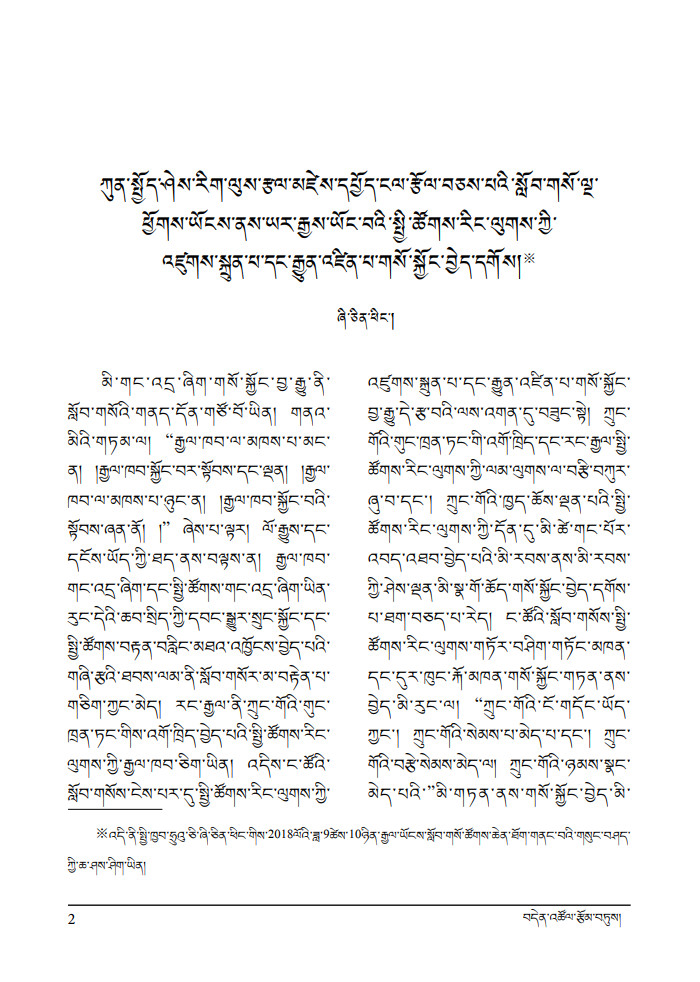 ཀུན་སྤྱོད་ཤེས་རིག་ལུས་རྩལ་མཛེས་དཔྱོད་ངལ་རྩོལ་བཅས་པའི་སློབ་གསོ་ལྔ་
ཕྱོགས་ཡོངས་ནས་ཡར་རྒྱས་ཡོང་བའི་སྤྱི་ཚོགས་རིང་ལུགས་ཀྱི་
འཛུགས་སྐྲུན་པ་དང་རྒྱུན་འཛིན་པ་གསོ་སྐྱོང་བྱེད་དགོས།※
ཞི་ཅིན་ཕིང་།
མི་གང་འདྲ་ཞིག་གསོ་སྐྱོང་བྱ་རྒྱུ་ནི་
སློབ་གསོའི་གནད་དོན་གཙོ་བོ་ཡིན། གནའ་
མིའི་གཏམ་ལ། “རྒྱལ་ཁབ་ལ་མཁས་པ་མང་
ན། །རྒྱལ་ཁབ་སྐྱོང་བར་སྟོབས་དང་ལྡན། །རྒྱལ་
ཁབ་ལ་མཁས་པ་ཉུང་ན། །རྒྱལ་ཁབ་སྐྱོང་བའི་
སྟོབས་ཞན་ནོ། །” ཞེས་པ་ལྟར། ལོ་རྒྱུས་དང་
དངོས་ཡོད་ཀྱི་ཐད་ནས་བལྟས་ན། རྒྱལ་ཁབ་
གང་འདྲ་ཞིག་དང་སྤྱི་ཚོགས་གང་འདྲ་ཞིག་ཡིན་
རུང་དེའི་ཆབ་སྲིད་ཀྱི་དབང་སྒྱུར་སྲུང་སྐྱོང་དང་
སྤྱི་ཚོགས་བརྟན་བརླིང་མཐའ་འཁྱོངས་བྱེད་པའི་
གཞི་རྩའི་ཐབས་ལམ་ནི་སློབ་གསོར་མ་བརྟེན་པ་
གཅིག་ཀྱང་མེད། རང་རྒྱལ་ནི་ཀྲུང་གོའི་གུང་
ཁྲན་ཏང་གིས་འགོ་ཁྲིད་བྱེད་པའི་སྤྱི་ཚོགས་རིང་
ལུགས་ཀྱི་རྒྱལ་ཁབ་ཅིག་ཡིན། འདིས་ང་ཚོའི་
སློབ་གསོས་ངེས་པར་དུ་སྤྱི་ཚོགས་རིང་ལུགས་ཀྱི་
འཛུགས་སྐྲུན་པ་དང་རྒྱུན་འཛིན་པ་གསོ་སྐྱོང་
བྱ་རྒྱུ་དེ་རྩ་བའི་ལས་འགན་དུ་བཟུང་སྟེ། ཀྲུང་
གོའི་གུང་ཁྲན་ཏང་གི་འགོ་ཁྲིད་དང་རང་རྒྱལ་སྤྱི་
ཚོགས་རིང་ལུགས་ཀྱི་ལམ་ལུགས་ལ་བརྩི་བཀུར་
ཞུ་བ་དང་། ཀྲུང་གོའི་ཁྱད་ཆོས་ལྡན་པའི་སྤྱི་
ཚོགས་རིང་ལུགས་ཀྱི་དོན་དུ་མི་ཚེ་གང་པོར་
འབད་འཐབ་བྱེད་པའི་མི་རབས་ནས་མི་རབས་
ཀྱི་ཤེས་ལྡན་མི་སྣ་གོ་ཆོད་གསོ་སྐྱོང་བྱེད་དགོས་
པ་ཐག་བཅད་པ་རེད། ང་ཚོའི་སློབ་གསོས་སྤྱི་
ཚོགས་རིང་ལུགས་གཏོར་བཤིག་གཏོང་མཁན་
དང་དུར་ཁུང་རྐོ་མཁན་གསོ་སྐྱོང་གཏན་ནས་
བྱེད་མི་རུང་ལ། “ཀྲུང་གོའི་ངོ་གདོང་ཡོད་
ཀྱང་། ཀྲུང་གོའི་སེམས་པ་མེད་པ་དང་། ཀྲུང་
གོའི་བརྩེ་སེམས་མེད་ལ། ཀྲུང་གོའི་ཉམས་སྣང་
མེད་པའི་”མི་གཏན་ནས་གསོ་སྐྱོང་བྱེད་མི་
※འདི་ནི་སྤྱི་ཁྱབ་ཧྲུའུ་ཅི་ཞི་ཅིན་ཕིང་གིས་2018ལོའི་ཟླ་9ཚེས་10ཉིན་རྒྱལ་ཡོངས་སློབ་གསོ་ཚོགས་ཆེན་ཐོག་གནང་བའི་གསུང་བཤད་
ཀྱི་ཆ་ཤས་ཤིག་ཡིན།
2 བདེན་འཚོལ་རྩོམ་བཏུས།